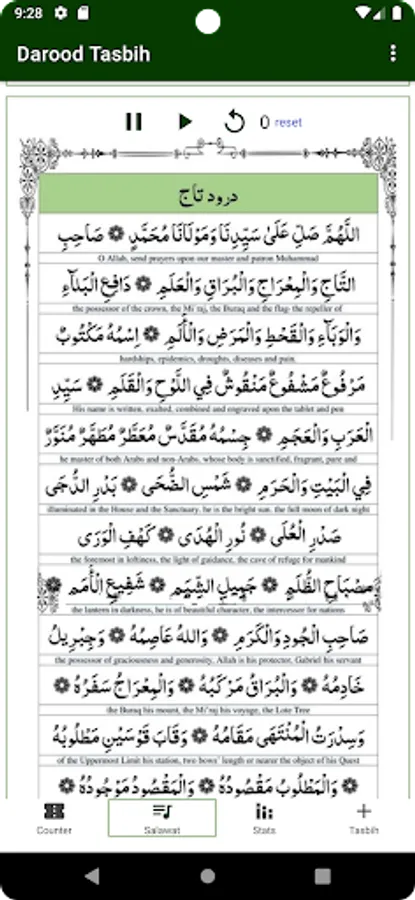 9:28
Darood Tasbih
0 reset
درود تاج
اَللّٰهُمَّ صَلِّ عَلٰى سَيِّدِنَا وَمَوْلَانَا مُحَمَّدٍ صَاحِبِ
O Allah, send prayers upon our master and patron Muhammad
التَّاجِ وَالْمِعْرَاجِ وَالْبُرَاقِ وَالْعَلَمِ دَافِعِ الْبَلَآءِ
the possessor of the crown, the Mi'raj, the Buraq and the flag- the repeller of
وَالْوَبَآءِ وَالْقَحْطِ وَالْمَرَضِ وَالْأَلَمِ اِسْمُهُ مَكْتُوبٌ
hardships, epidemics, droughts, diseases and pain.
مَرْفُوعٌ مَشْفُوعٌ مَنْقُوشٌ فِي اللَّوْحِ وَالْقَلَمِ سَيِّدِ
His name is written, exalted, combined and engraved upon the tablet and pen
الْعَرَبِ وَالْعَجَمِ جِسْمُهُ مُقَدَّسٌ مُعَطَّرٌ مُطَهَّرٌ مُنَوَّرٌ
he master of both Arabs and non-Arabs, whose body is sanctified, fragrant, pure and
فِي الْبَيْتِ وَالْحَرَمِ شَمْسِ الضُّحَى بَدْرِ الدُّجَى
illuminated in the House and the Sanctuary. he is the bright sun. the full moon of dark night
صَدْرِ الْعُلَى نُورِ الْهُدَى كَهْفِ الْوَرَى
the foremost in loftiness, the light of guidance, the cave of refuge for mankind
مِصْبَاحِ الظُّلَمِ جَمِيلِ الشِّيَمِ شَفِيعِ الْأُمَمِ
the lantern in darkness, he is of beautiful character, the intercessor for nations
صَاحِبِ الْجُودِ وَالْكَرَمِ وَاللهُ عَاصِمُهُ وَجِبْرِيلُ
the possessor of graciousness and generosity, Allah is his protector, Gabriel his servant
خَادِمُهُ وَالْبُرَاقُ مَرْكَبُهُ وَالْمِعْرَاجُ سَفَرُهُ
the Buraq his mount, the Mi'raj his voyage, the Lote Tree
وَسِدْرَتُ الْمُنْتَهَى مَقَامُهُ وَقَابَ قَوْسَيْنِ مَطْلُوبُهُ
of the Uppermost Limit his station, two bows' length or nearer the object of his Quest
وَالْمَطْلُوبُ مَقْصُودُهُ وَالْمَقْصُودُ مَوْجُودُهُ
Counter
Salawat
Stats
Tasbih